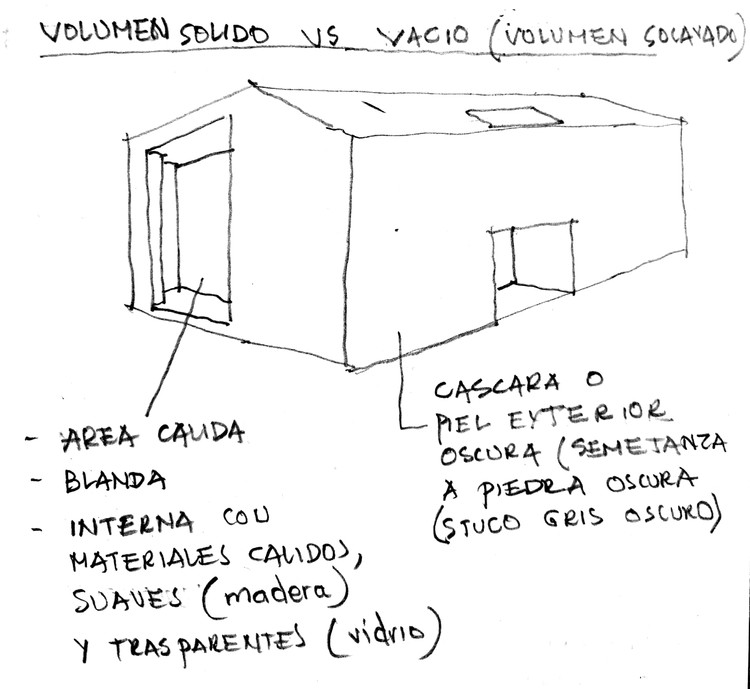 VOLUMEN SOLIDO VS VACIO (VOLUMEN SOCAVADO)
- AREA CALIDA
- BLANDA
- INTERNA CON
MATERIALES CALIDOS,
SUAVES (madera)
Y TRASPARENTES (vidrio)
CASCARA O
PIEL EXTERIOR
OSCURA (SEMEJANZA
A PIEDRA OSCURA
(STUCO GRIS OSCURO)